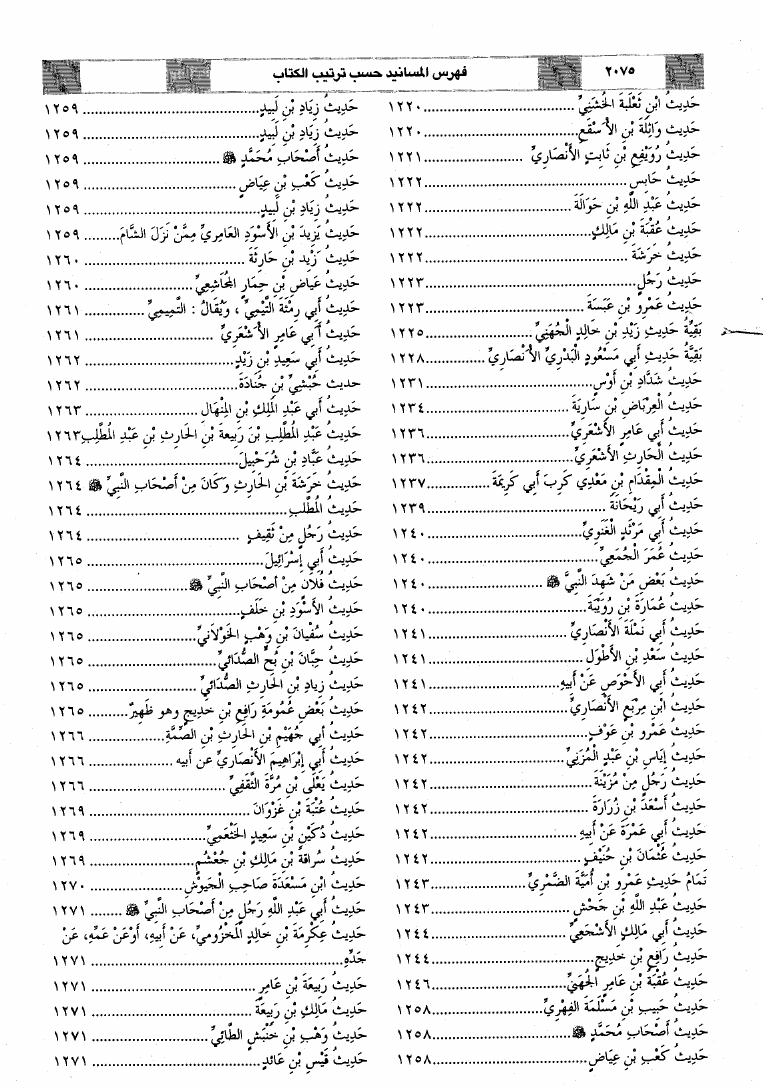 ٢٠٧٥
فهرس المسانيد حسب ترتيب الكتاب
حَدِيثُ ابْنِ ثَعْلَبَةَ الْخُشَنِيِّ ..... ١٢٢٠
حَدِيثُ وَاثِلَةَ بْنِ الأَسْقَعِ ..... ١٢٢٠
حَدِيثُ رُوَيْفِعِ بْنِ ثَابِتٍ الأَنْصَارِيِّ ..... ١٢٢١
حَدِيثُ حَابِسٍ ..... ١٢٢٢
حَدِيثُ عَبْدِ اللَّهِ بْنِ حَوَالَةَ ..... ١٢٢٢
حَدِيثُ عُقْبَةَ بْنِ مَالِكٍ ..... ١٢٢٢
حَدِيثُ خَرَشَةَ ..... ١٢٢٢
حَدِيثُ رَجُلٍ ..... ١٢٢٣
حَدِيثُ عَمْرِو بْنِ عَبَسَةَ ..... ١٢٢٣
بَقِيَّةُ حَدِيثِ زَيْدِ بْنِ خَالِدٍ الْجُهَنِيِّ ..... ١٢٢٥
بَقِيَّةُ حَدِيثِ أَبِي مَسْعُودٍ الْبَدْرِيِّ الأَنْصَارِيِّ ..... ١٢٢٨
حَدِيثُ شَدَّادِ بْنِ أَوْسٍ ..... ١٢٣١
حَدِيثُ الْعِرْبَاضِ بْنِ سَارِيَةَ ..... ١٢٣٤
حَدِيثُ أَبِي عَامِرٍ الأَشْعَرِيِّ ..... ١٢٣٦
حَدِيثُ الْحَارِثِ الأَشْعَرِيِّ ..... ١٢٣٦
حَدِيثُ الْمِقْدَامِ بْنِ مَعْدِي كَرِبَ أَبِي كَرِيمَةَ ..... ١٢٣٧
حَدِيثُ أَبِي رَيْحَانَةَ ..... ١٢٣٩
حَدِيثُ أَبِي مَرْثَدٍ الْغَنَوِيِّ ..... ١٢٤٠
حَدِيثُ عُمَرَ الْجُمَعِيِّ ..... ١٢٤٠
حَدِيثُ بَعْضِ مَنْ شَهِدَ النَّبِيَّ ﷺ ..... ١٢٤٠
حَدِيثُ عُمَارَةَ بْنِ رُوَيْبَةَ ..... ١٢٤٠
حَدِيثُ أَبِي نَمْلَةَ الأَنْصَارِيِّ ..... ١٢٤١
حَدِيثُ سَعْدِ بْنِ الأَطْوَلِ ..... ١٢٤١
حَدِيثُ أَبِي الأَحْوَصِ عَنْ أَبِيهِ ..... ١٢٤١
حَدِيثُ ابْنِ مِرْبَعٍ الأَنْصَارِيِّ ..... ١٢٤٢
حَدِيثُ عَمْرِو بْنِ عَوْفٍ ..... ١٢٤٢
حَدِيثُ إِيَاسِ بْنِ عَبْدٍ الْمُزَنِيِّ ..... ١٢٤٢
حَدِيثُ رَجُلٍ مِنْ مُزَيْنَةَ ..... ١٢٤٢
حَدِيثُ أَسْعَدَ بْنِ زُرَارَةَ ..... ١٢٤٢
حَدِيثُ أَبِي عَمْرَةَ عَنْ أَبِيهِ ..... ١٢٤٢
حَدِيثُ عُثْمَانَ بْنِ حُنَيْفٍ ..... ١٢٤٢
تَمَامُ حَدِيثِ عَمْرِو بْنِ أُمَيَّةَ الضَّمْرِيِّ ..... ١٢٤٣
حَدِيثُ عَبْدِ اللَّهِ بْنِ جَحْشٍ ..... ١٢٤٣
حَدِيثُ أَبِي مَالِكٍ الأَشْجَعِيِّ ..... ١٢٤٤
حَدِيثُ رَافِعِ بْنِ خَدِيجٍ ..... ١٢٤٤
حَدِيثُ عُقْبَةَ بْنِ عَامِرٍ الْجُهَنِيِّ ..... ١٢٤٦
حَدِيثُ حَبِيبِ بْنِ مَسْلَمَةَ الْفِهْرِيِّ ..... ١٢٥٨
حَدِيثُ أَصْحَابِ مُحَمَّدٍ ﷺ ..... ١٢٥٨
حَدِيثُ كَعْبِ بْنِ عِيَاضٍ ..... ١٢٥٨
حَدِيثُ زِيَادِ بْنِ لَبِيدٍ ..... ١٢٥٩
حَدِيثُ زِيَادِ بْنِ لَبِيدٍ ..... ١٢٥٩
حَدِيثُ أَصْحَابِ مُحَمَّدٍ ﷺ ..... ١٢٥٩
حَدِيثُ كَعْبِ بْنِ عِيَاضٍ ..... ١٢٥٩
حَدِيثُ زِيَادِ بْنِ لَبِيدٍ ..... ١٢٥٩
حَدِيثُ يَزِيدَ بْنِ الأَسْوَدِ العَامِرِيِّ مِمَّنْ نَزَلَ الشَّامَ ..... ١٢٥٩
حَدِيثُ زَيْدِ بْنِ حَارِثَةَ ..... ١٢٦٠
حَدِيثُ عِيَاضِ بْنِ حِمَارٍ المُجَاشِعِيِّ ..... ١٢٦٠
حَدِيثُ أَبِي رِمْثَةَ التَّيْمِيِّ ، وَيُقَالُ : التَّمِيمِيِّ ..... ١٢٦١
حَدِيثُ أَبِي عَامِرٍ الأَشْعَرِيِّ ..... ١٢٦١
حَدِيثُ أَبِي سَعِيدِ بْنِ زَيْدٍ ..... ١٢٦٢
حديث حُبْشِيِّ بْنِ جُنَادَةَ ..... ١٢٦٢
حَدِيثُ أَبِي عَبْدِ المَلِكِ بْنِ المِنْهَالِ ..... ١٢٦٣
حَدِيثُ عَبْدِ المُطَّلِبِ بْنِ رَبِيعَةَ بْنِ الحَارِثِ بْنِ عَبْدِ المُطَّلِبِ ١٢٦٣
حَدِيثُ عَبَّادِ بْنِ شُرَحْبِيلَ ..... ١٢٦٤
حَدِيثُ خَرَشَةَ بْنِ الحَارِثِ وَكَانَ مِنْ أَصْحَابِ النَّبِيِّ ﷺ ١٢٦٤
حَدِيثُ المُطَّلِبِ ..... ١٢٦٤
حَدِيثُ رَجُلٍ مِنْ ثَقِيفٍ ..... ١٢٦٤
حَدِيثُ أَبِي إِسْرَائِيلَ ..... ١٢٦٥
حَدِيثُ فُلَانٍ مِنْ أَصْحَابِ النَّبِيِّ ﷺ ..... ١٢٦٥
حَدِيثُ الأَسْوَدِ بْنِ خَلَفٍ ..... ١٢٦٥
حَدِيثُ سُفْيَانَ بْنِ وَهْبٍ الخَوْلَانِيِّ ..... ١٢٦٥
حَدِيثُ حِبَّانَ بْنِ بُحٍّ الصُّدَائِيِّ ..... ١٢٦٥
حَدِيثُ زِيَادِ بْنِ الحَارِثِ الصُّدَائِيِّ ..... ١٢٦٥
حَدِيثُ بَعْضِ عُمُومَةِ رَافِعِ بْنِ خَدِيجٍ وهو ظَهِيرٌ ..... ١٢٦٥
حَدِيثُ أَبِي جُهَيْمِ بْنِ الحَارِثِ بْنِ الصِّمَّةِ ..... ١٢٦٦
حَدِيثُ أَبِي إِبْرَاهِيمَ الأَنْصَارِيِّ عن أبيه ..... ١٢٦٦
حَدِيثُ يَعْلَى بْنِ مُرَّةَ الثَّقَفِيِّ ..... ١٢٦٦
حَدِيثُ عُتْبَةَ بْنِ غَزْوَانَ ..... ١٢٦٩
حَدِيثُ دُكَيْنِ بْنِ سَعِيدٍ الخَثْعَمِيِّ ..... ١٢٦٩
حَدِيثُ سُرَاقَةَ بْنِ مَالِكِ بْنِ جُعْشُمٍ ..... ١٢٦٩
حَدِيثُ ابْنِ مَسْعَدَةَ صَاحِبِ الجُيوشِ ..... ١٢٧٠
حَدِيثُ أَبِي عَبْدِ اللَّهِ رَجُلٍ مِنْ أَصْحَابِ النَّبِيِّ ﷺ ..... ١٢٧١
حَدِيثُ عِكْرِمَةَ بْنِ خَالِدٍ المَخْزُومِيِّ، عَنْ أَبِيهِ، أَوْ عَنْ عَمِّهِ، عَنْ
جَدِّهِ ..... ١٢٧١
حَدِيثُ رَبِيعَةَ بْنِ عَامِرٍ ..... ١٢٧١
حَدِيثُ مَالِكِ بْنِ رَبِيعَةَ ..... ١٢٧١
حَدِيثُ وَهْبِ بْنِ خَنْبَشٍ الطَّائِيِّ ..... ١٢٧١
حَدِيثُ قَيْسِ بْنِ عَائِدٍ ..... ١٢٧١